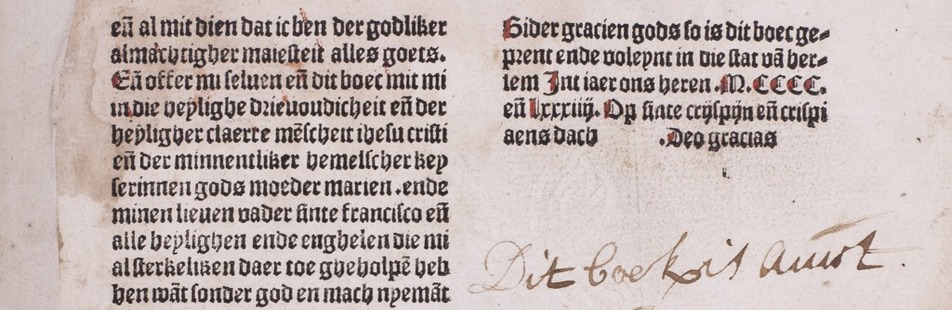 eñ al mit dien dat ic ben der godliker
almachtigher maiesteit alles goets.
Eñ offer mi seluen eñ dit boec mit mi
in die heylighe drieuoudicheit eñ der
heyligher claerre mēscheit ihesu cristi
eñ der minnentliker hemelscher key
serinnen gods moeder marien .ende
minen lieuen vader sinte francisco eñ
alle heylighen ende enghelen die mi
al sterkeliken daer toe gheholpē heb
ben wāt sonder god en mach nyemāt
Bider gracien gods so is dit boec ge-
prent ende voleynt in die stat vā her-
lem Int iaer ons heren .M.CCCC.
eñ lxxxiiij. Op sinte crijspijn eñ crispi
aens dach .Deo gracias
Dit boek is